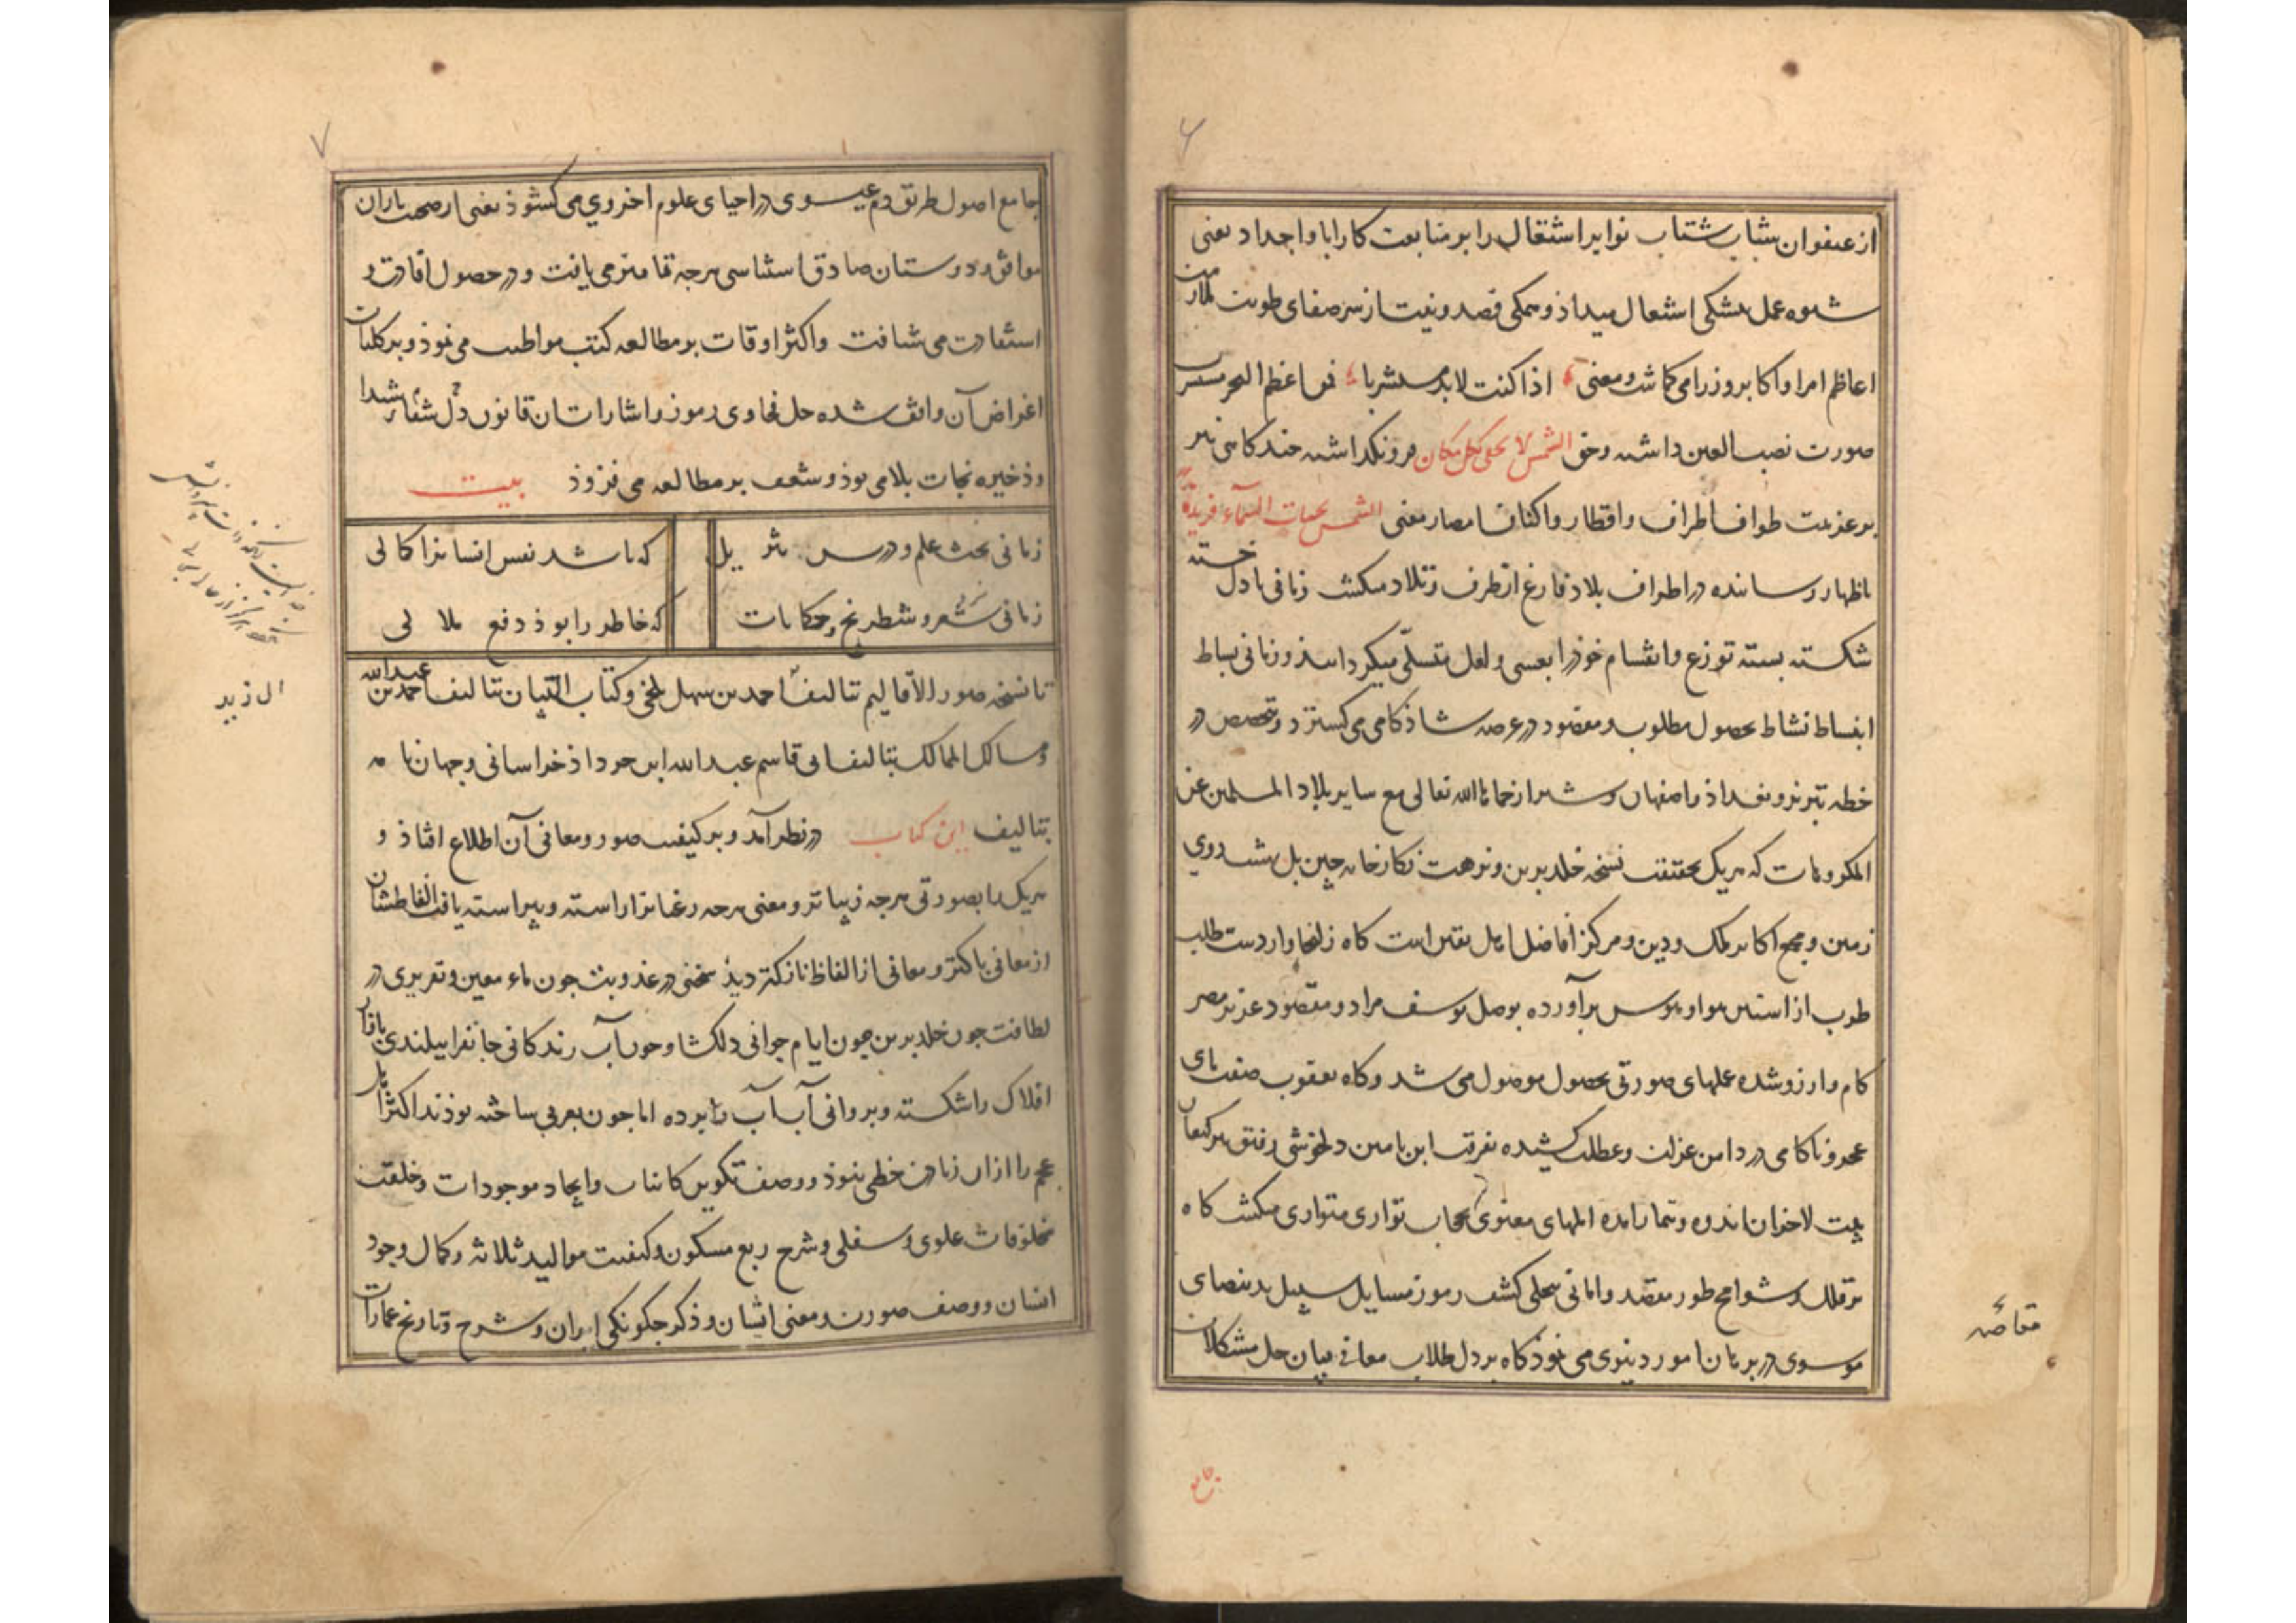 ۶
از عنفوان شباب شتاب نوایر اشتغال را بر متابعت کار ابا و اجداد یعنی
شیوه عمل بشکی اشتعال میداذ و همکی قصد و نیت از سر صفای طویت
اعاظم امرا و اکابر وزرا می کماشت و معنی اذا کنت لابد مستشربا فمن اعظم البحر
صورت نصب العین داشته و حق الشمس لا تخفی بکل مکان فرو نکذاشته جند کاهی بر
بر عزیمت طواف اطراف و اقطار و اکناف امصار معنی الشمس السماء فریدة
باظهار رسانیده در اطراف بلاد فارغ از طرف و تلاد میکشت زمانی با دل خسته
شکسته بسته توزع و انقسام خوذ را بعسی و لعل متسلی میکردانید و زمانی بساط
انبساط نشاط بحصول مطلوب و مقصود در عرصه شاذکامی می کسترد و بتخصیص در
خطه تبریز و بغداذ و اصفهان و شیراز حماها الله تعالی مع سایر بلاد المسلمین عن
المکروهات که هریک بحقیقت نسخه خلد برین و نزهت نکارخانه چین بل بهشت روی
زمین و مجمع اکابر ملک و دین و مرکز افاضل اهل یقین است کاه زلیخاوار دست طلب
طرب از استین هوا و هوس برآورده بوصل یوسف مراد و مقصود عزیز مصر
کام و ارزو شده عملهای صورتی بحصول موصول می شد و کاه یعقوب صفت پای
عجز و ناکامی در دامن عزلت و عطلت کشیده بفرقت ابن یامین دلخوشی رفیق پیر کنعان
بیت الاحزان اندوه و تیمار امده املهای معنوی بحجاب تواری متواری میکشت کاه
بر قلل و شوامخ طور مقصد و امانی بتجلی کشف رموز مسایل سبیل ید بیضای
موسوی در برهان امور دینوی می نموذ کاه بر دل طلاب معانی ببیان حل مشکلات
جامع
مقاصه
۷
جامع اصول طریق دم عیسوی در احیای علوم اخروی می کشوذ یعنی از صحبت یاران
موافق و دوستان صادق استیناسی هرجه تمامتر می یافت و در حصول افادت و
استفادت می شتافت و اکثر اوقات بر مطالعه کتب مواظبت می نموذ و بر کلیات
اغراض آن واقف شده حل فحاوی رموز و اشارات ان قانون دل شفاء شیدا
و ذخیره نجات بلا می بوذ و شعف بر مطالعه می فزوذ بیت
زمانی بحث علم و درس تنزیل که باشد نفس انسانرا کمالی
زمانی شعر و شطرنج و حکایات که خاطر را بوذ دفع ملالی
تا نسخه صور الاقالیم تالیف احمد بن سهل بلخی و کتاب التبیان تالیف احمد بن عبدالله
و مسالک الممالک تالیف ابی قاسم عبدالله ابن خرداذ خراسانی و جهان نامه
بتالیف این کتاب در نظر آمد و بر کیفیت صور و معانی آن اطلاع افتاذ و
هریک را بصورتی هرجه زیباتر و معنی هرجه رعناتر اراسته و پیراسته یافت الفاظشان
از معانی پاکتر و معانی از الفاظ نازکتر دیذ سخنی در عذوبت جون ماء معین و تقریری در
لطافت جون خلد برین چون ایام جوانی دلکشا و جون آب زندکانی جانفزا ببلندی
افلاک را شکسته و بروانی آب آب را برده اما جون بعربی ساخته بوذند اکثر اهل
عجم را ازان زیادت حظی نبوذ و وصف تکوین کاینات و ایجاد موجودات و خلقت
مخلوقات علوی و سفلی و شرح ربع مسکون و کیفیت موالید ثلاثه و کمال وجود
انسان و وصف صورت و معنی ایشان و ذکر جکونکی ایران و شرح و تاریخ عمارات